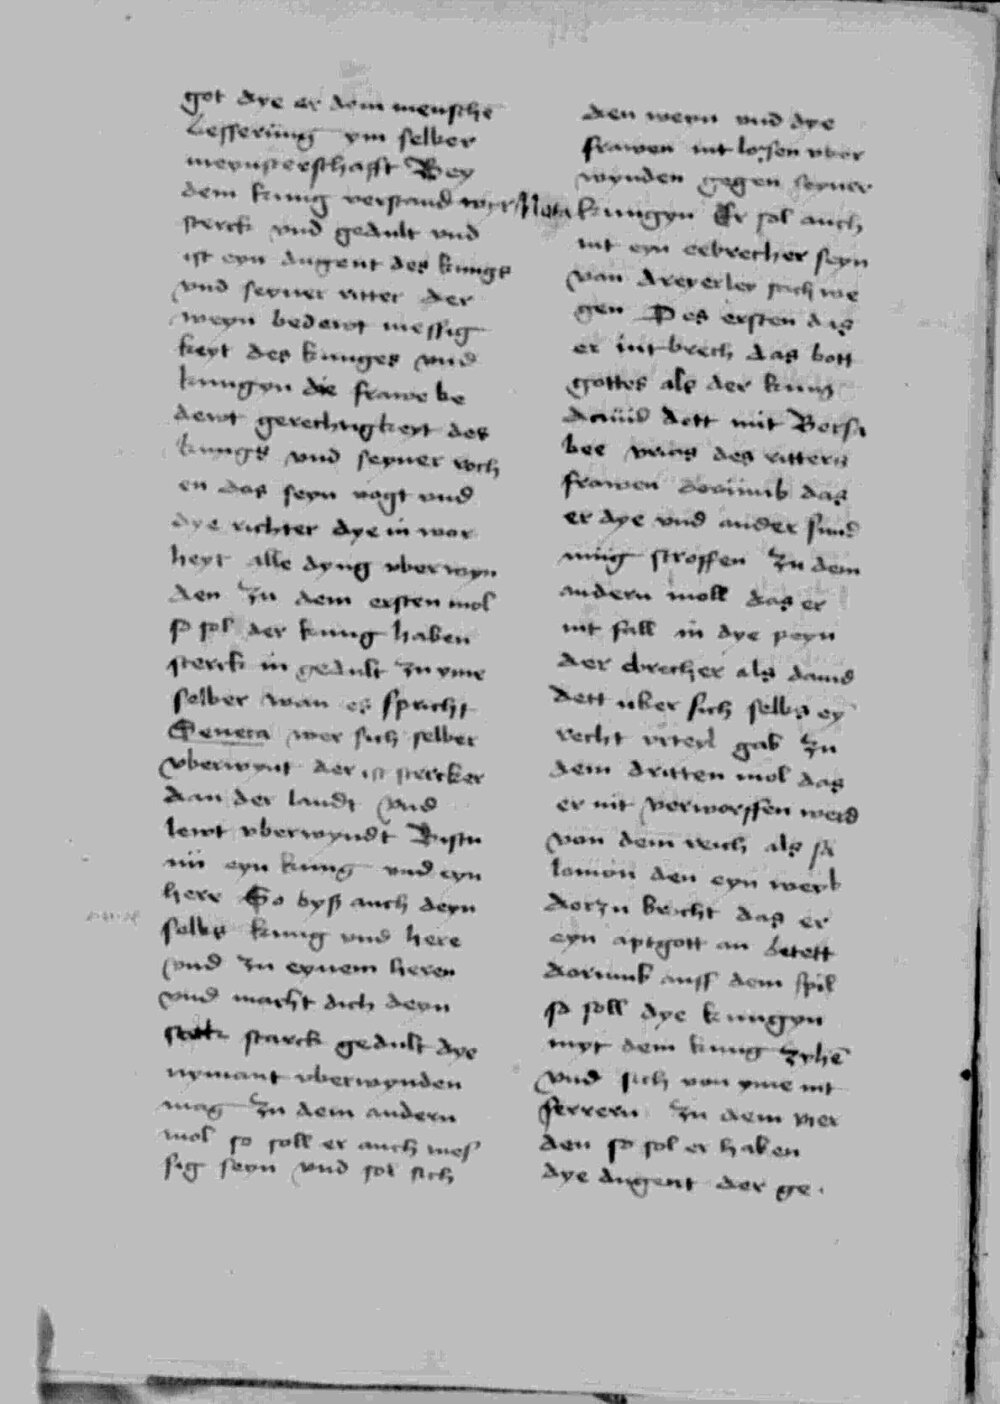 got dye er dem mensche
besserung ym selber
meynsterschafft Bey
dem kunig verstand wyr Nota
sterck vnd gedult vnd
ist eyn dugent des kungs
vnd seyner ritter der
weyn bedewt messig
keyt des kuniges vnd
kungyn die frawe be
dewt gerechtigkeyt des
kungs vnd seyner roch
en das seyn vogt vnd
dye richter dye in wor
heyt alle dyng vberwyn
den zu dem ersten mol
so sol der kunig haben
sterck in gedult zu yme
selber wan es spricht
Seneca wer sich selber
vberwynt der ist stercker
dan der landt vnd
lewt vberwyndt Bistu
nu eyn kunig vnd eyn
herr So byß auch deyn
selbs kunig vnd here
vnd zu eynem heren
vnd macht dich deyn
starck gedult dye
nymant vberwynden
mag zu dem andern
mol so soll er auch mes
sig seyn vnd sol sich
den weyn vnd dye
frawen nit losen vber
wynden gegen seyner
kungyn Er sol auch
nit eyn eebrecher seyn
van dreyerley sach we
gen Des ersten das
er nit brech das bott
gottes als der kunig
dauid dett mit Bersa
bee vrias des ritters
frawen dorumb das
er dye vnd ander sund
mug stroffen zu dem
andern moll das er
nit fall in dye peyn
der brecher als dauid
dett vber sich selbs ey
recht vrteyl gab zu
dem dritten mol das
er nit verworffen werd
von dem reich als sa
lomon den eyn weyb
dorzu brocht das er
eyn aptgott an betett
dorumb auss dem spil
so soll dye kungyn
myt dem kunig zyhe
vnd sich von yme nit
ferrern zu dem vier
den so sol er haben
dye dugent der ge